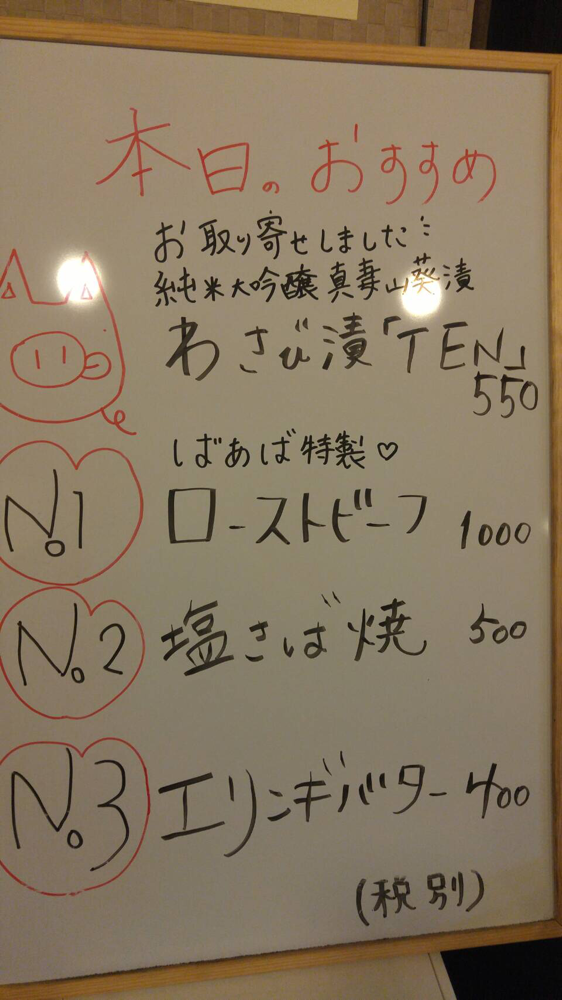 本日のおすすめ
お取り寄せしました
純米大吟醸真妻山葵漬
わさび漬「TEN」
550
ばあば特製♡
No.1 ローストビーフ 1000
No.2 塩さば焼 500
No.3 エリンギバター 400
(税別)